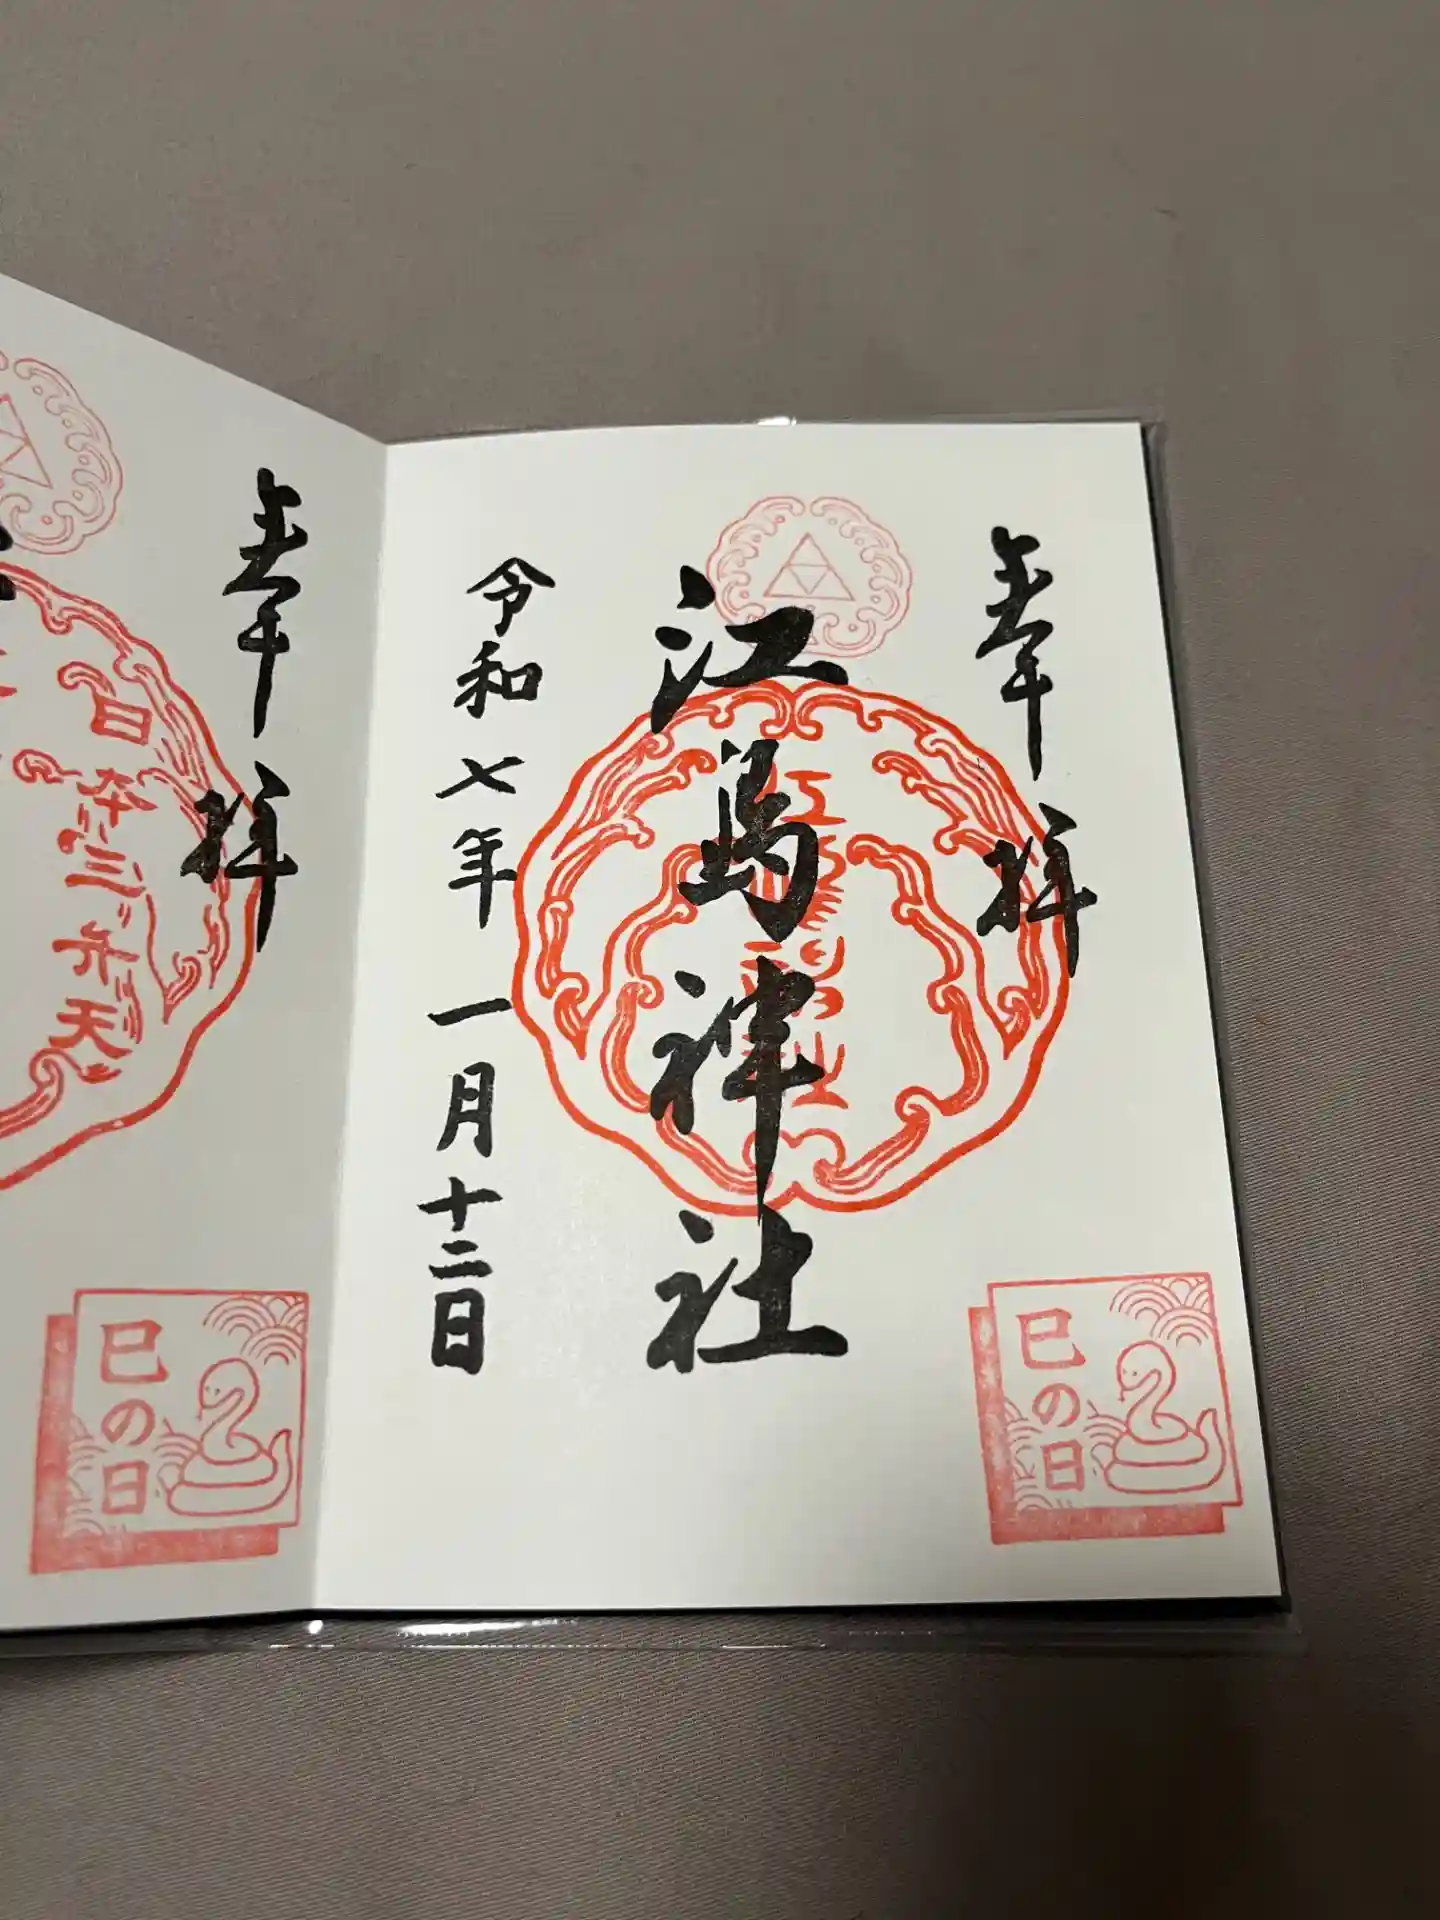 奉拝
江島神社
令和七年一月十二日
巳の日
奉拝
日本三弁天
巳の日